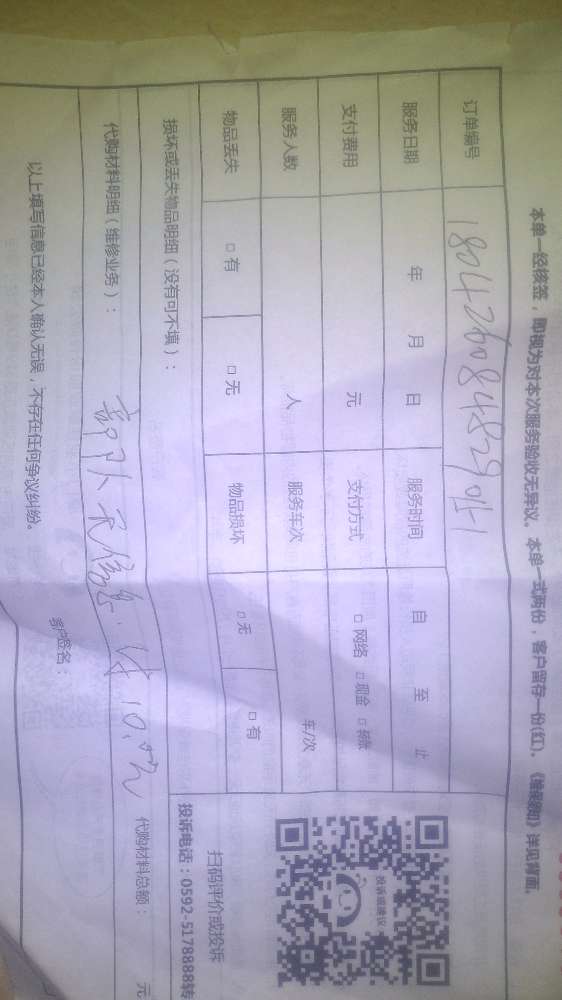 本单一经核签，即视为对本次服务验收无异议。本单一式两份，客户留存一份(红)。《维保须知》详见背面。
订单编号
服务日期 年 月 日 服务时间 自 至 止
支付费用 元 支付方式 □ 网络 □ 现金 □ 转账
服务人数 人 服务车次 车/次
物品丢失 □ 有 □ 无 物品损坏 □ 无 □ 有
投诉或建议
扫码评价或投诉
投诉电话：0592-5178888转
损坏或丢失物品明细（没有可不填）：
代购材料明细（维修业务）： 代购材料总额： 元
以上填写信息已经本人确认无误，不存在任何争议纠纷。
客户签名：